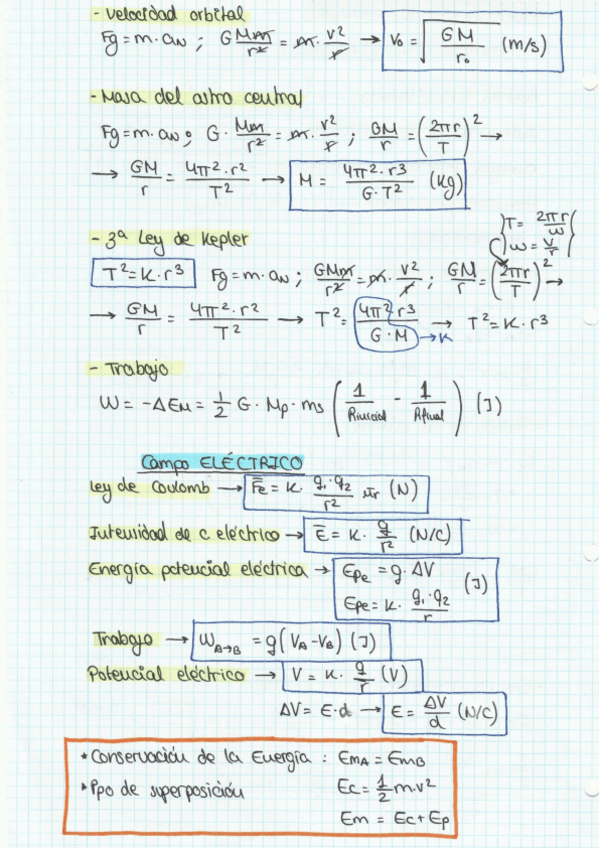 - Velocidad orbital
Fg = m · aN ; G Mm/r² = m · v²/r → v₀ = √(GM/r₀) (m/s)
- Masa del astro central
Fg = m · aN ; G · Mm/r² = m · v²/r ; GM/r = (2πr/T)² →
→ GM/r = 4π² · r²/T² → M = 4π² · r³/G · T² (Kg)
T = 2πr/w
w = v/r
- 3ª Ley de Kepler
T² = K · r³ Fg = m · aN ; GMm/r² = m · v²/r ; GM/r = (2πr/T)² →
→ GM/r = 4π² · r²/T² → T² = 4π² r³/G · M → K → T² = K · r³
- Trabajo
W = -ΔEM = 1/2 G · Mp · ms (1/Rinicial - 1/Rfinal) (J)
Campo ELÉCTRICO
Ley de Coulomb → F̅e = K · q₁ · q₂/r² u̅r (N)
Intensidad de c. eléctrico → E̅ = K · q/r² (N/C)
Energía potencial eléctrica → Epe = q · ΔV
Epe = K · q₁ · q₂/r (J)
Trabajo → W A→B = q (VA - VB) (J)
Potencial eléctrico → V = K · q/r (V)
ΔV = E · d → E = ΔV/d (N/C)
* Conservación de la Energía : EmA = EmB
* Ppo de superposición Ec = 1/2 m · v²
Em = Ec + Ep